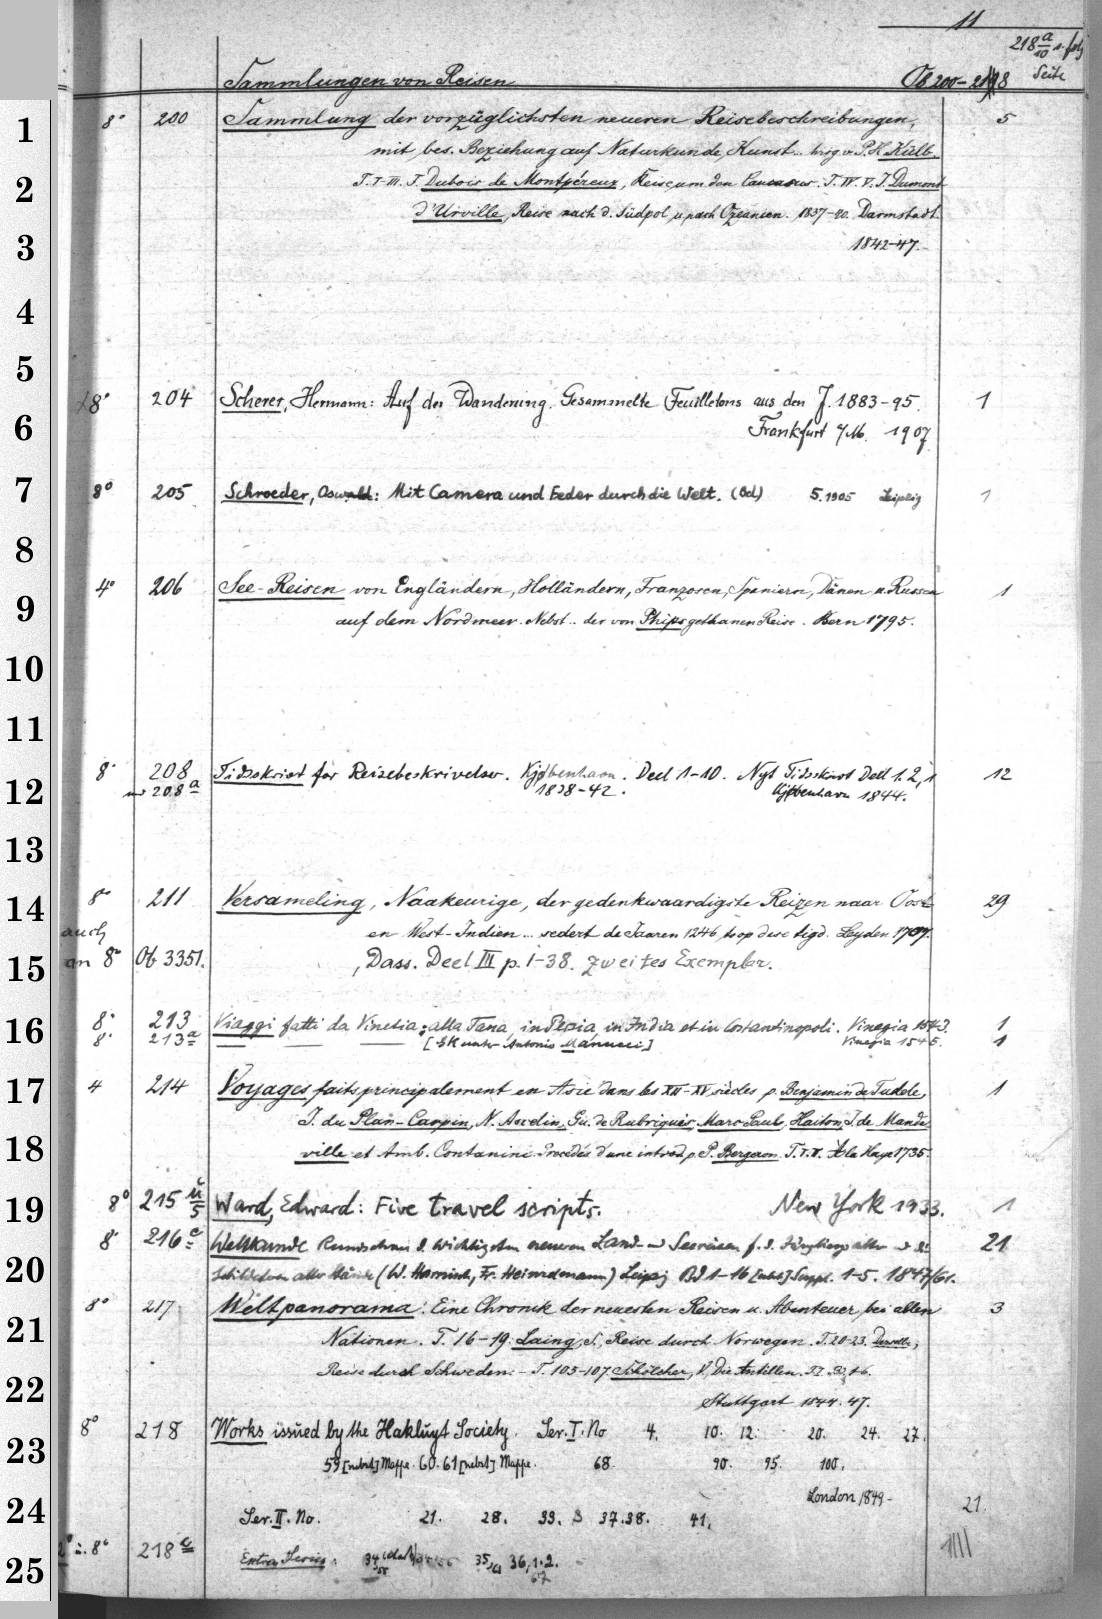 11
218 a/10
Sammlungen von Reisen Ob 200-218 Seite
1 8° 200 Sammlung der vorzüglichsten neueren Reisebeschreibungen, 5
mit bes. Beziehung auf Naturkunde, Kunst .. hrsg v. P. H. Külb.
2 T. I-III. J. Dubois de Montpéreux, Reise um den Caucasus. T. IV. V. J. Dumont
d'Urville, Reise nach d. Südpol u. nach Ozeanien. 1837-40. Darmstadt.
3 1842-47.
4
5
8° 204 Scherer, Hermann: Auf der Wanderung. Gesammelte Feuilletons aus den J. 1883-95. 1
6 Frankfurt a/M. 1907
7 8° 205 Schroeder, Oswald: Mit Camera und Feder durch die Welt. (Bd) 5. 1905 Leipzig 1
8
4° 206 See-Reisen von Engländern, Holländern, Franzosen, Spaniern, Dänen u. Russen 1
9 auf dem Nordmeer. Nebst .. der von Phips gethanen Reise. Bern 1795.
10
11
8° 208 Tidsskrivt for Reisebeskrivelser. Kjøbenhavn. Deel 1-10. Nyt Tidsskrivt Deel 1.2,1 12
12 208a 1838-42. Kjøbenhavn 1844.
13
14 8° 211 Versameling, Naakeurige, der gedenkwaardigste Reizen naar Oost- 29
auch en West-Indien ... sedert de Jaaren 1246 to op dese tigd. Leyden 1707.
15 an 8° Ob 3351. , Dass. Deel III p. 1-38. zweites Exemplar.
16 8° 213 Viaggi fatti da Vinetia: alla Tana, in Persia, in India et in Costantinopoli. Vinegia 1543. 1
8° 213a [ unter Antonio Manucci] Vinegia 1545. 1
17 4 214 Voyages faits principalement en Asie dans les XII-XV siècles p. Benjamin de Tudele, 1
J. du Plan-Carpin, N. Ascelin, Gu. de Rubriquis, Marc Paul, Haiton, J. de Mande-
18 ville et Amb. Contarini. Precédés d'une introd. p. P. Bergeron. T. I. II. A la Haye 1735.
19 8° 215 u/5 Ward, Edward: Five travel scripts. New York 1933. 1
8° 216c Weltkunde Rundschau d. wichtigsten neueren Land- u Seereisen f. d. 21
20 (W. Harnisch, Fr. Heinzelmann) Leipz Bd 1-16 [nebst] Suppl. 1-5. 1847/61.
8° 217 Weltpanorama: Eine Chronik der neuesten Reisen u. Abenteuer bei allen 3
21 Nationen. T. 16-19: Laing, S., Reise durch Norwegen. T. 20-23.
Reise durch Schweden. - T. 105-107. Schölcher, V., Die Antillen.
22 Stuttgart 1844. 47.
8° 218 Works issued by the Hakluyt Society. Ser. I. No 4. 10. 12. 20. 24. 27.
23 59 [nebst] Mappe. 60. 61 [nebst] Mappe. 68. 90. 95. 100.
London 1849-
24 Ser. II. No. 21. 28. 33. 37. 38. 41. 21.
25 2° u. 8° 218c Extra Series: 34 35 36, 1.2.